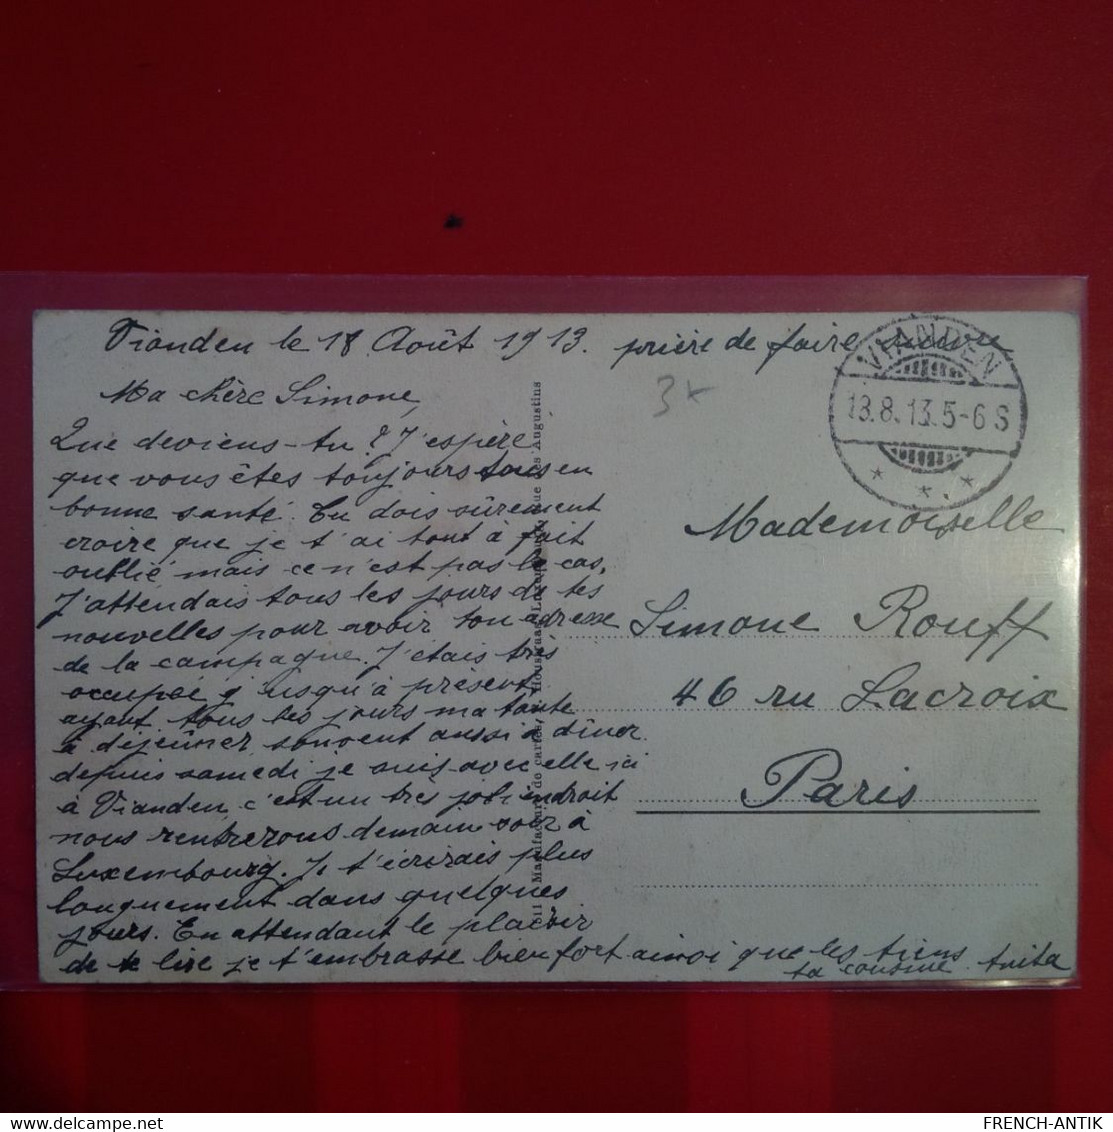 Vianden le 18 Août 1913. prière de faire suivre
VIANDEN
18.8.13.5-6 S
3x
Ma chère Simone,
Que deviens-tu? J'espère
que vous êtes toujours tous en
bonne santé. Tu dois sûrement
croire que je t'ai tout à fait
oublié mais ce n'est pas le cas,
J'attendais tous les jours de tes
nouvelles pour avoir ton adresse
de la campagne. J'étais très
occupée jusqu'à présent,
ayant tous les jours ma tante
à déjeûner souvent aussi à dîner
depuis samedi je suis avec elle ici
à Vianden, c'est un très joli endroit
nous rentrerons demain soir à
Luxembourg. Je t'écrirais plus
longuement dans quelques
jours. En attendant le plaisir
de te lire je t'embrasse bien fort ainsi que les tiens
ta cousine Anita
Manufacture de cartes, Luxembourg rue des Augustins
Mademoiselle
Simone Rouff
46 ru Lacroix
Paris
FRENCH-ANTIK